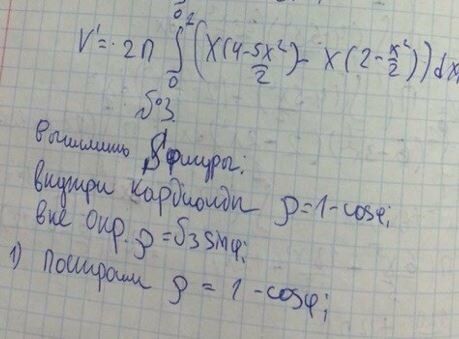 0
V' = 2π ∫₀² (x(4-5x²)/2 - x(2-x²/2)) dx
√3
Вычислить S фигуры:
внутри кардиоиды ρ=1-cosφ;
вне окр. ρ=√3 sinφ;
1) Построим ρ = 1-cosφ;